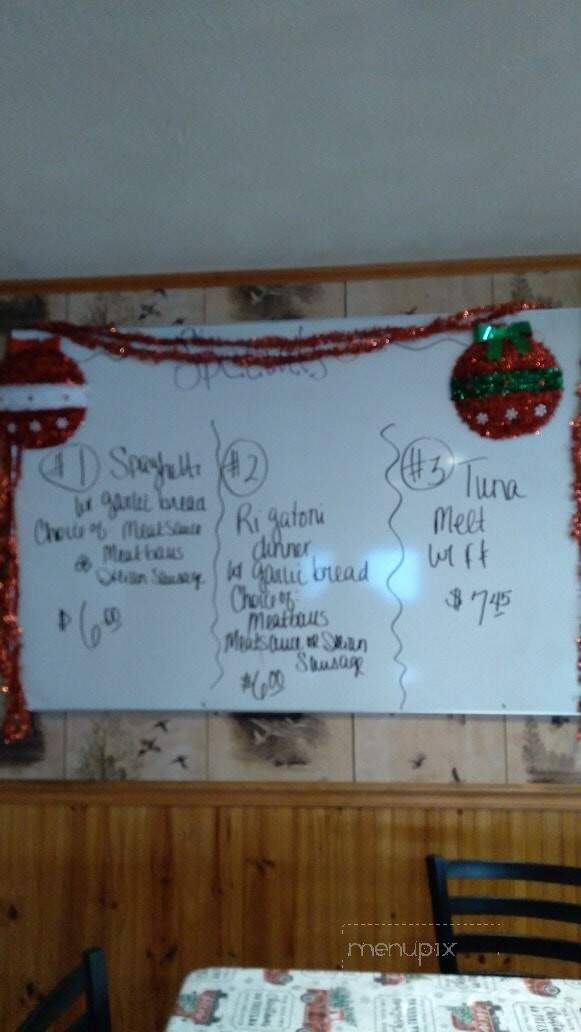 Specials
#1 Spaghetti
w/ garlic bread
Choice of Meatsauce
or Meatballs
Italian Sausage
$6.00
#2
Rigatoni
dinner
w/ garlic bread
Choice of:
Meatballs
Meatsauce or Italian
Sausage
$6.00
#3 Tuna
Melt
w/ ff
$7.45
menupix